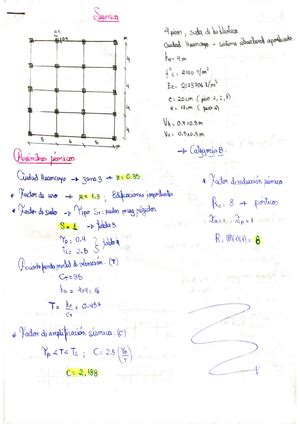 4 pisos, sala de biblioteca
Ciudad Huancayo - sistema estructural aporticado
f'c = 2100 T/m²
e = 20cm (piso 1, 2, 3)
→ Categoría B.
Parámetros sísmicos
Ciudad Huancayo → zona 3 → z = 0.35
* Factor de uso → μ = 1.3 ; Edificaciones importantes
* Factor de suelo → Tipo S₁:
S = 1 → tabla 3
Tp = 0.4
TL = 2.5
tabla 4
Periodo fundamental de vibración. (T)
CT = 35
hn = 4×4 = 16
T = hn/CT = 0.457
* Factor de amplificación sísmica. (C)
Tp < T < TL ; C = 2.5 (Tp/T)
C = 2.188
* Factor de reducción sísmica
R₀ = 8 → pórticos
Ia = 1 ; Ip = 1
R = 8(1)(1) = 8